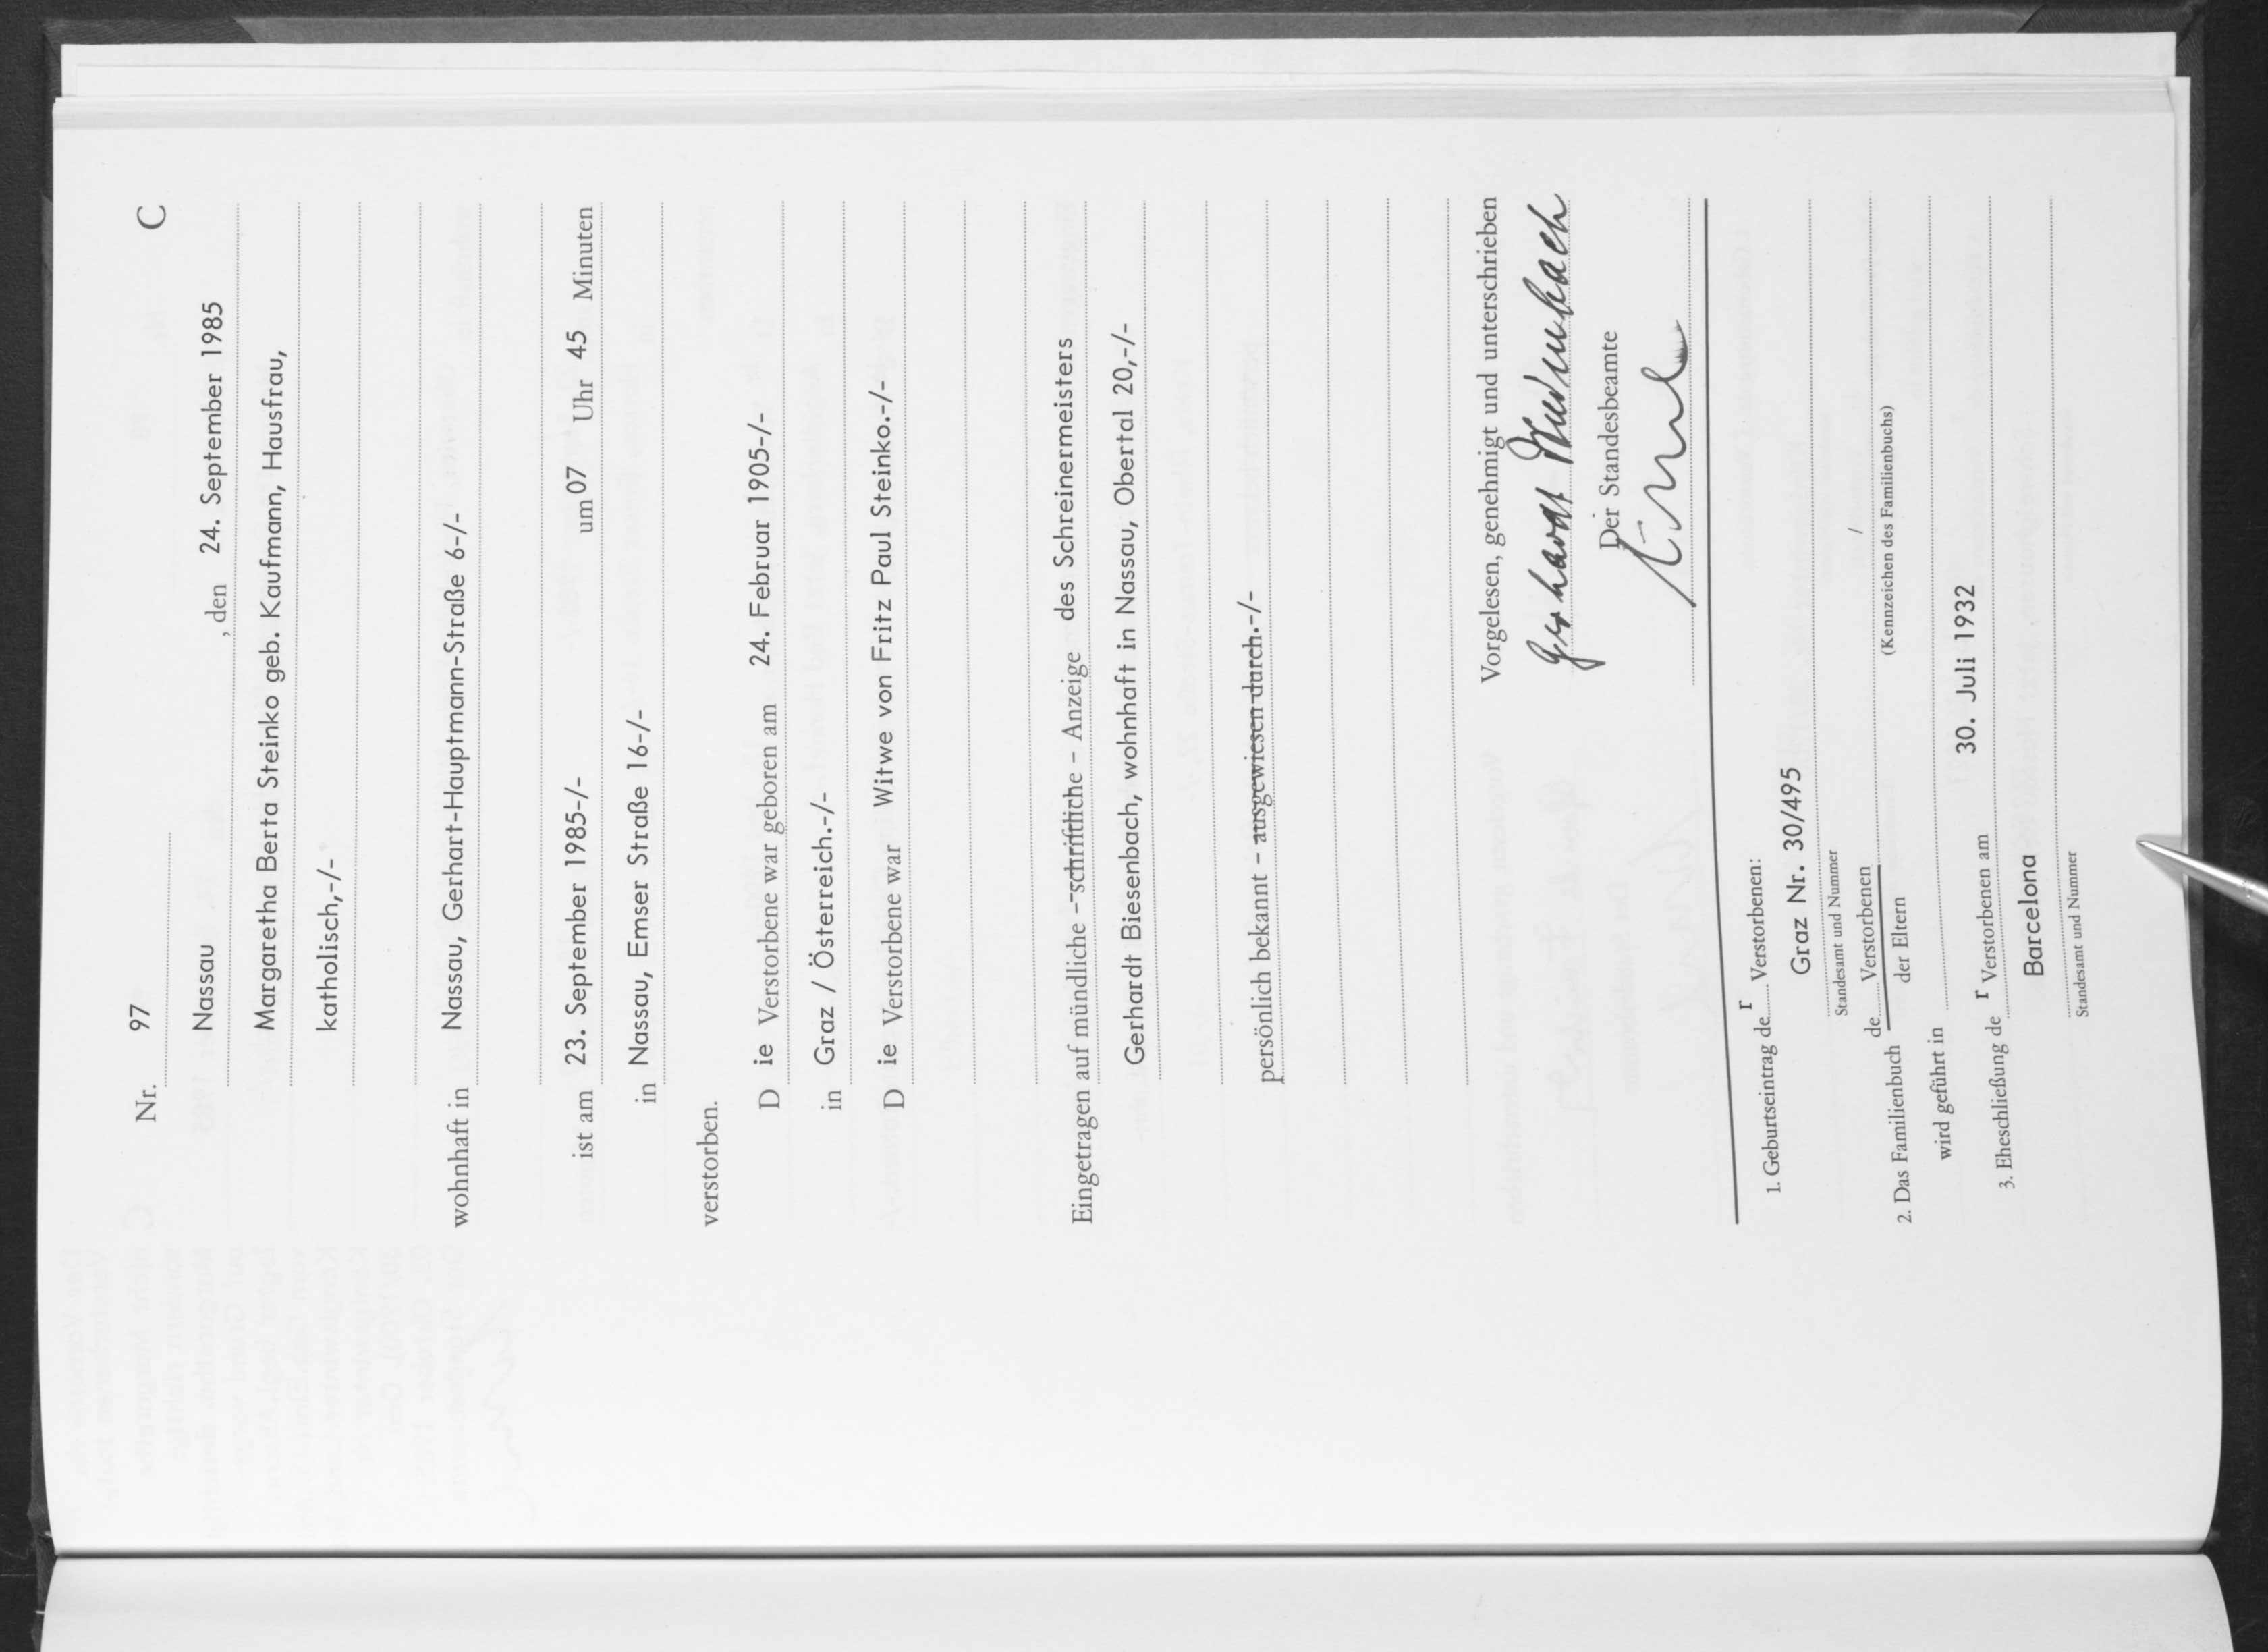 Nr. 97 C
Nassau , den 24. September 1985
Margaretha Berta Steinko geb. Kaufmann, Hausfrau,
katholisch,-/-
wohnhaft in Nassau, Gerhart-Hauptmann-Straße 6-/-
ist am 23. September 1985-/- um 07 Uhr 45 Minuten
in Nassau, Emser Straße 16-/-
verstorben.
D ie Verstorbene war geboren am 24. Februar 1905-/-
in Graz / Österreich.-/-
D ie Verstorbene war Witwe von Fritz Paul Steinko.-/-
Eingetragen auf mündliche – schriftliche – Anzeige des Schreinermeisters
Gerhardt Biesenbach, wohnhaft in Nassau, Obertal 20,-/-
persönlich bekannt – ausgewiesen durch.-/-
Vorgelesen, genehmigt und unterschrieben
Gerhardt Biesenbach
Der Standesbeamte
1. Geburtseintrag de r Verstorbenen:
Graz Nr. 30/495
Standesamt und Nummer
2. Das Familienbuch de Verstorbenen /
der Eltern (Kennzeichen des Familienbuchs)
wird geführt in
3. Eheschließung de r Verstorbenen am 30. Juli 1932
Barcelona
Standesamt und Nummer